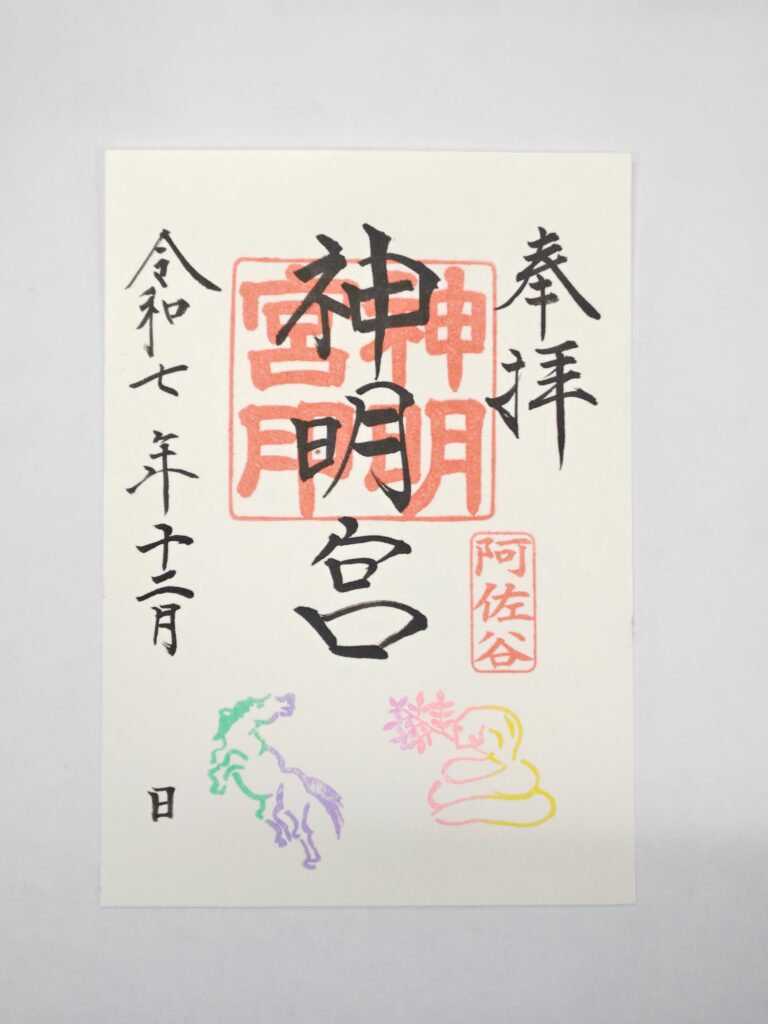 奉拝
阿佐谷
神明宮
神明宮印
令和七年十二月 日